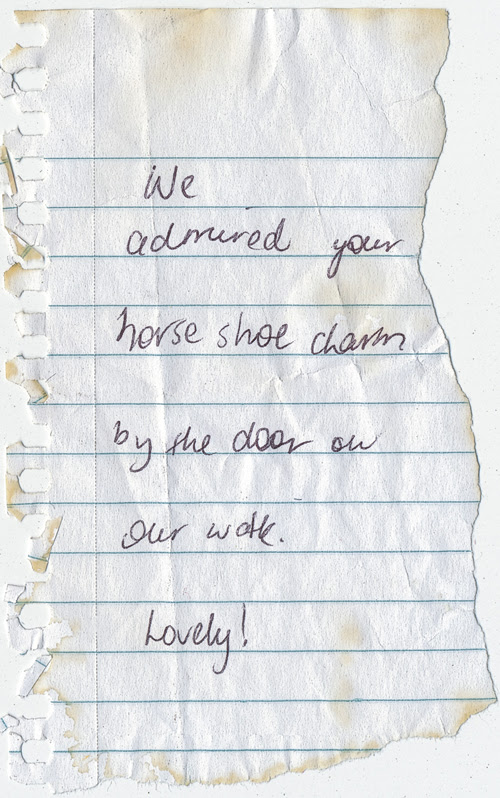 We
admired your
horse shoe charm
by the door on
our walk.
Lovely!